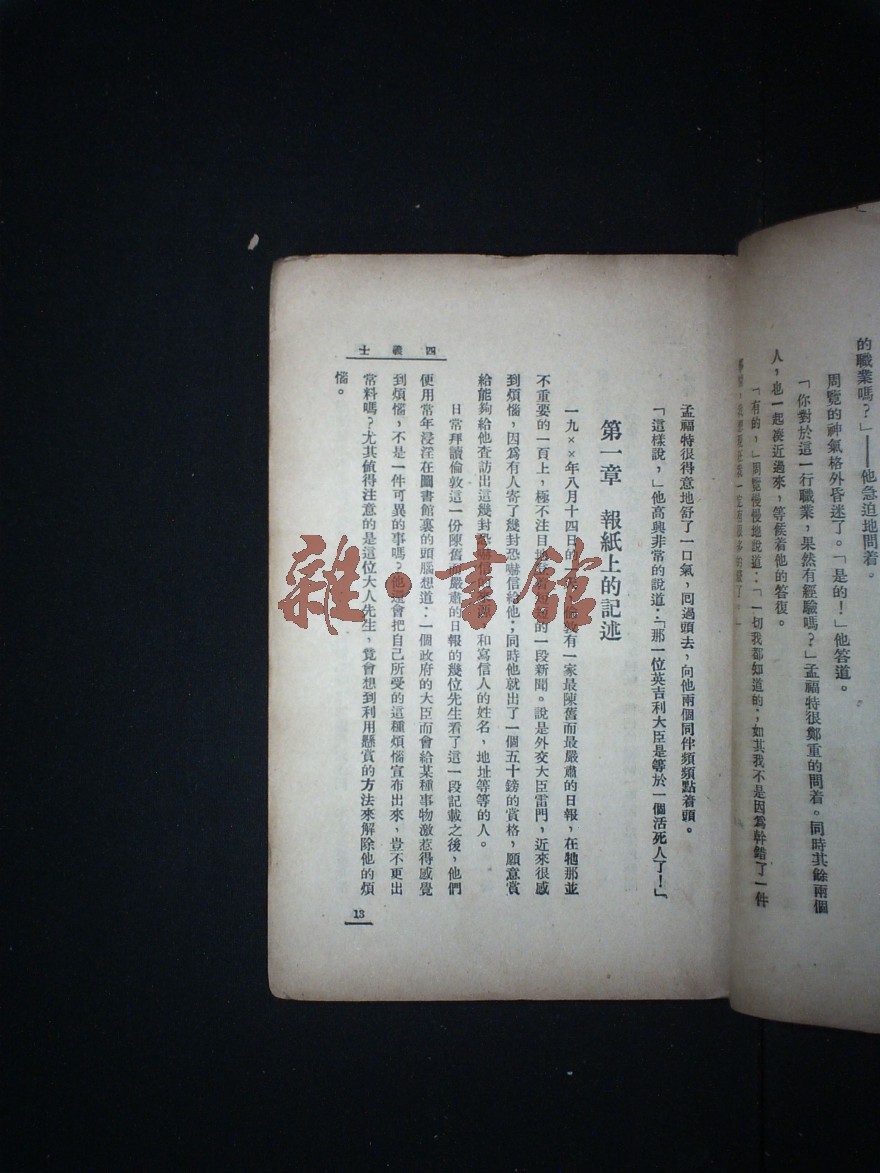 的職業嗎？」——他急迫地問着。
周覽的神氣格外昏迷了。「是的！」他答道。
「你對於這一行職業，果然有經驗嗎？」孟福特很鄭重的問着。同時其餘兩個
人，也一起湊近過來，等候着他的答復。
「有的，」周覽慢慢地說道：「一切我都知道的；如其我不是因爲幹錯了一件
孟福特很得意地舒了一口氣，囘過頭去，向他兩個同伴頻頻點着頭。
「這樣說，」他高興非常的說道：「那一位英吉利大臣是等於一個活死人了！」
第一章 報紙上的記述
一九××年八月十四日的一天，倫敦有一家最陳舊而最嚴肅的日報，在牠那並
不重要的一頁上，極不注目地的一段新聞。說是外交大臣雷門，近來很感
到煩惱，因爲有人寄了幾封恐嚇信給他；同時他就出了一個五十鎊的賞格，願意賞
給能夠給他查訪出這幾封恐嚇信的來源，和寫信人的姓名，地址等等的人。
日常拜讀倫敦這一份陳舊而嚴肅的日報的幾位先生看了這一段記載之後，他們
便用常年浸淫在圖書館裏的頭腦想道：一個政府的大臣而會給某種事物激惹得感覺
到煩惱，不是一件可異的事嗎？他還會把自己所受的這種煩惱宣布出來，豈不更出
常料嗎？尤其値得注意的是這位大人先生，竟會想到利用懸賞的方法來解除他的煩
惱。
四義士
13
雜·書館